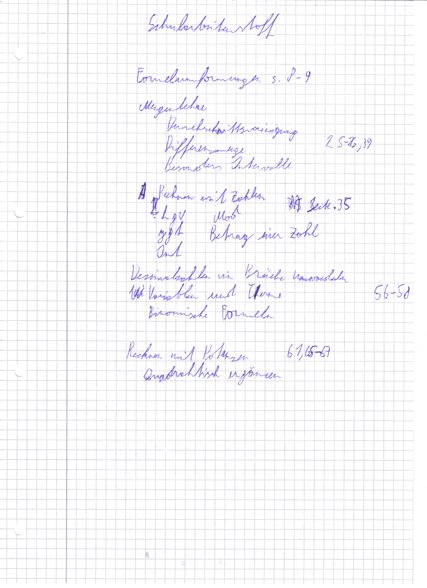 Schularbeitenstoff
Formelumformungen s. 8-9
Mengenlehre
Durchschnitt
Differenzmenge 25-26,39
Besondere Intervalle
Rechnen mit Zahlen Seite 35
kgV Mod
ggT Betrag einer Zahl
Int
Dezimalzahlen in Brüche umwandeln
Variablen und Terme 56-58
Binomische Formeln
Rechnen mit Potenzen 61,65-67
Quadratisch ergänzen